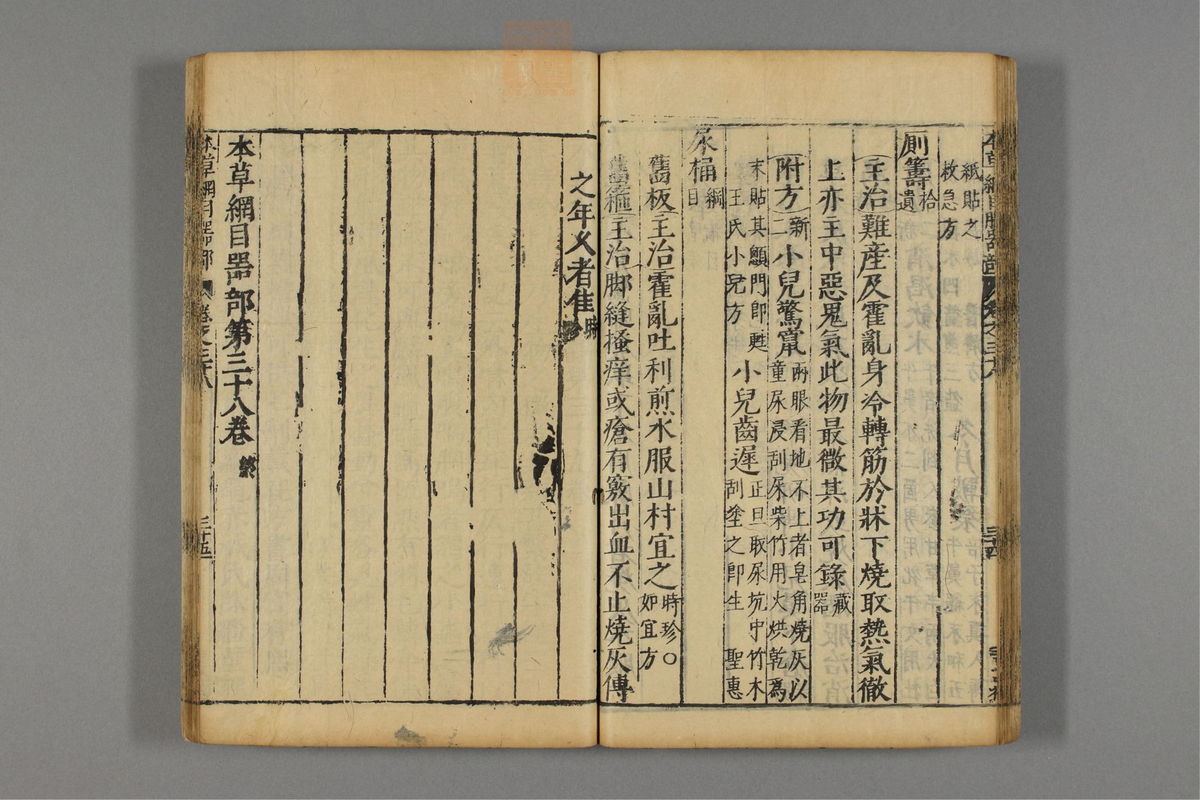 紙貼之
救急方
廁籌拾遺
主治難産及霍亂身冷轉筋於牀下燒取熱氣徹
上亦主中惡鬼氣此物最微其功可錄藏器
附方新二小兒驚竄兩眼看地不上者皂角燒灰以
童尿浸刮屎柴竹用火烘乾爲
末貼其顖門即甦
王氏小兒方
小兒齒遲正旦取尿坑中竹木
刮塗之即生 聖惠
尿桶綱目
舊板主治霍亂吐利煎水服山村宜之時珍○
如宜方
舊箍主治脚縫搔痒或瘡有竅出血不止燒灰傅
之年久者佳時珍
本草綱目器部第三十八卷終
本草綱目器部 卷之三十八 三十五